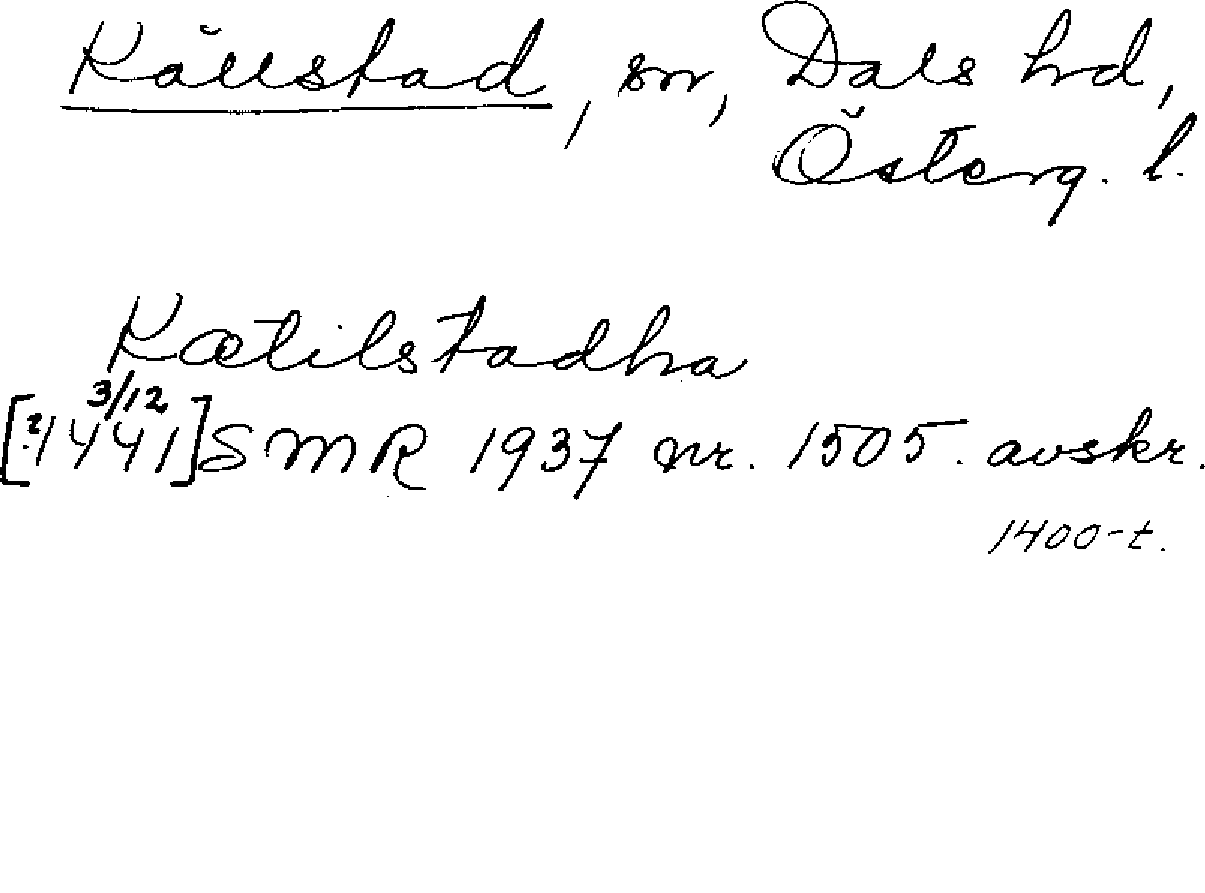 Källstad, sn, Dals hd,
Österg. l.
Kætilstadha
3/12
[?1441] SMR 1937 nr. 1505. avskr.
1400-t.